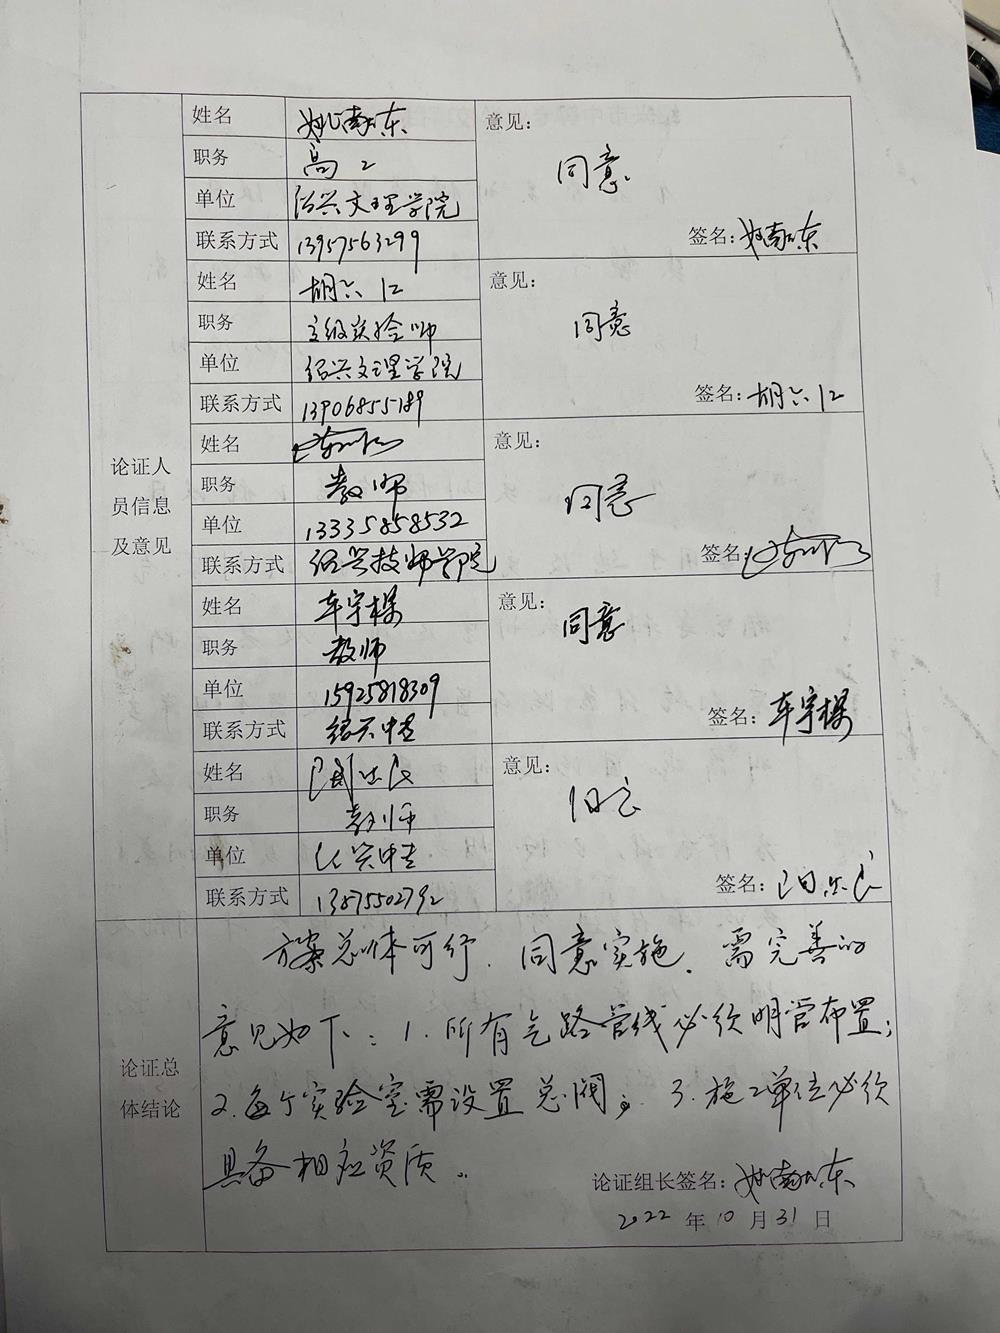 姓名
意见：
职务 高工
同意
单位 绍兴文理学院
签名：
联系方式 13957563299
姓名 胡六江
意见：
职务 高级实验师
同意
单位 绍兴文理学院
联系方式 13906855189
签名：胡六江
姓名
意见：
职务 教师
同意
单位 13335858532
联系方式 绍兴技师学院
签名：
姓名 车宇樑
意见：
职务 教师
同意
单位 15925818309
联系方式 绍兴中专
签名：车宇樑
姓名
意见：
职务 教师
同意
单位 绍兴中专
联系方式
签名：
论证人
员信息
及意见
方案总体可行．同意实施．需完善的
意见如下：1.所有气路管线必须明管布置；
2.每个实验室需设置总阀；3.施工单位必须
具备相应资质。
论证总
体结论
论证组长签名：
2022年10月31日